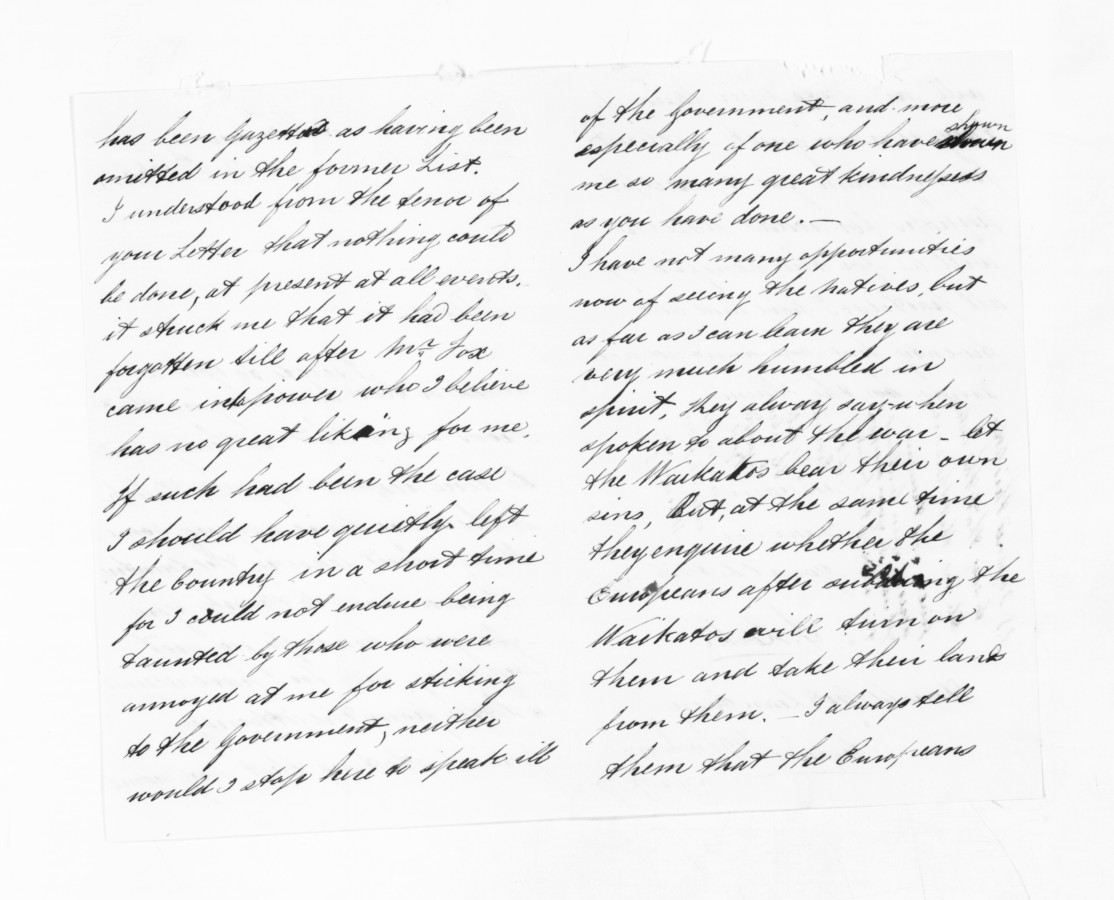 has been Gazetted as having been
omitted in the former List.
I understood from the tenor of
your Letter that nothing could
be done, at present at all events.
it struck me that it had been
forgotten till after Mr. Fox
came into power who I believe
has no great liking for me.
If such had been the case
I should have quietly left
the Country in a short time
for I could not endure being
taunted by those who were
annoyed at me for sticking
to the Government, neither
would I stop here to speak ill
of the Government, and more
especially of one who have shown
me so many great kindnesses
as you have done. —
I have not many opportunities
now of seeing the natives, but
as far as I can learn they are
very much humbled in
spirit, they alway say when
spoken to about the war - let
the Waikatos bear their own
sins, But, at the same time
they enquire whether the
Europeans after subduing the
Waikatos will turn on
them and take their lands
from them. — I always tell
them that the Europeans